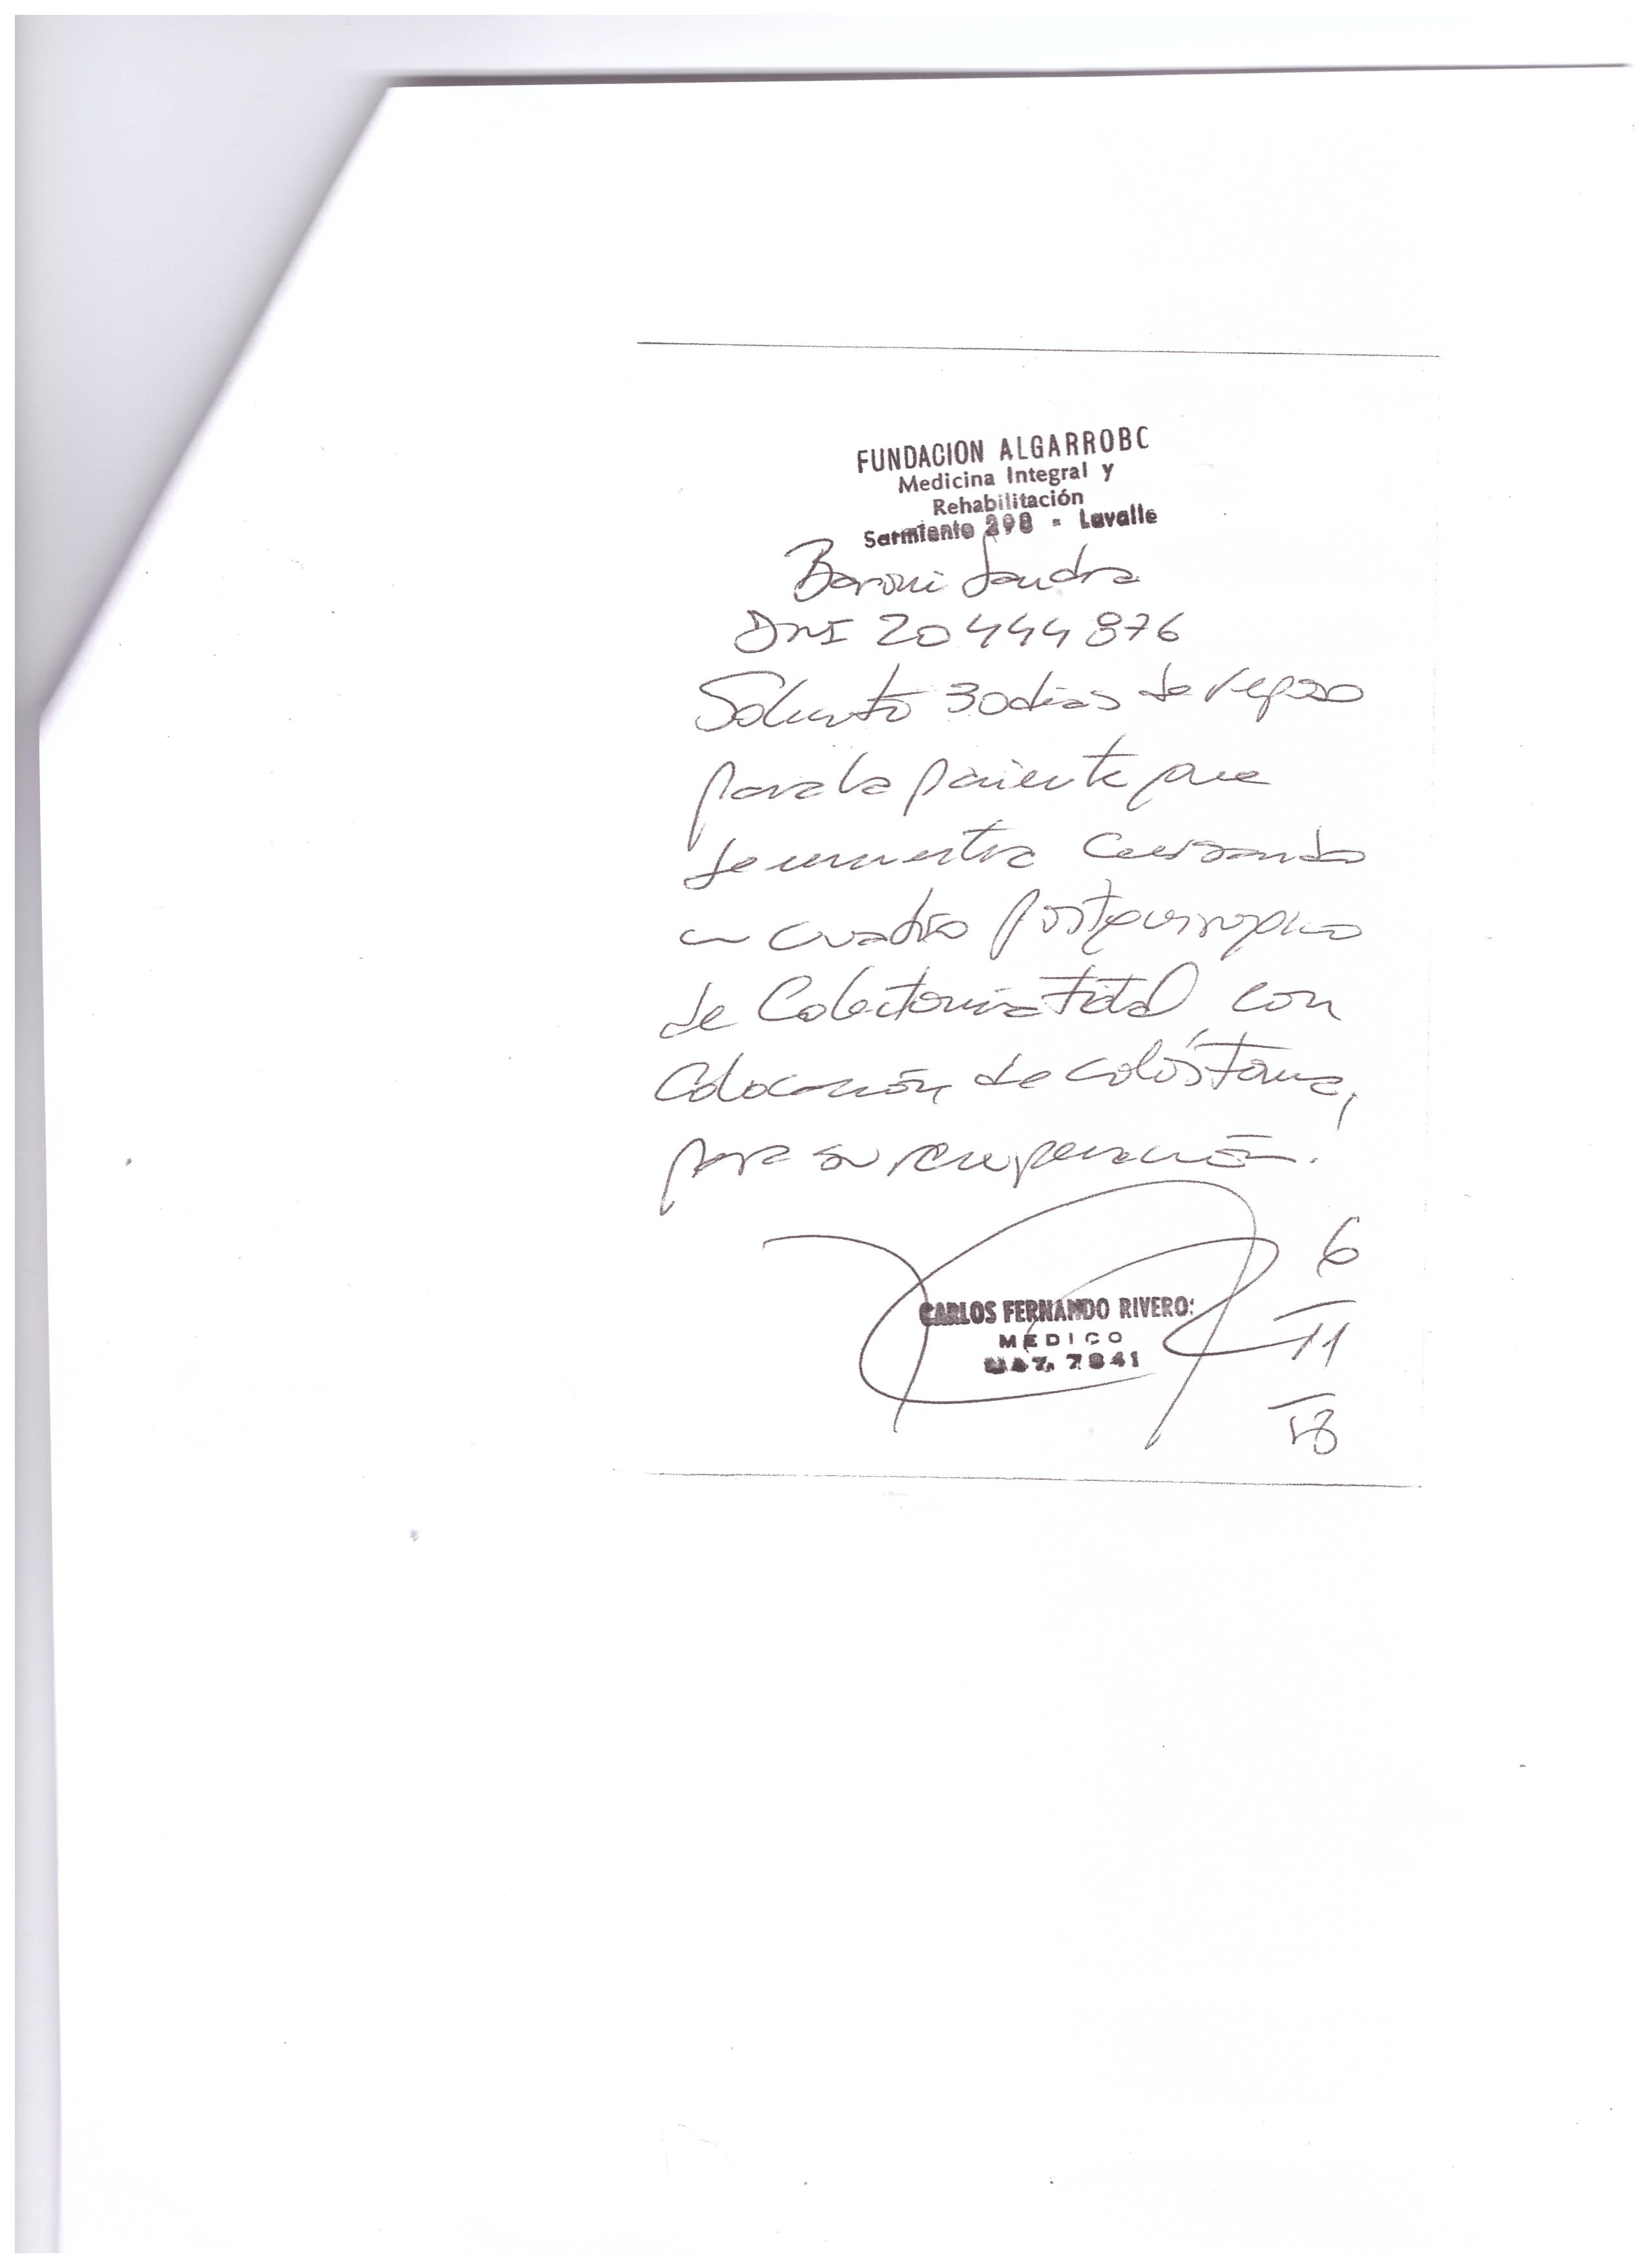 FUNDACION ALGARROBC
Medicina Integral y
Rehabilitación
Sarmiento 298 - Lavalle
Baroni Sandra
DNI 20444876
Solicito 30 dias de reposo
para la paciente que
se encuentra cursando
un cuadro postquirurgico
de Colectomia Total con
Colocación de colóstoma,
para su recuperación.
CARLOS FERNANDO RIVERO
MEDICO
MAT. 7841
6
11
18